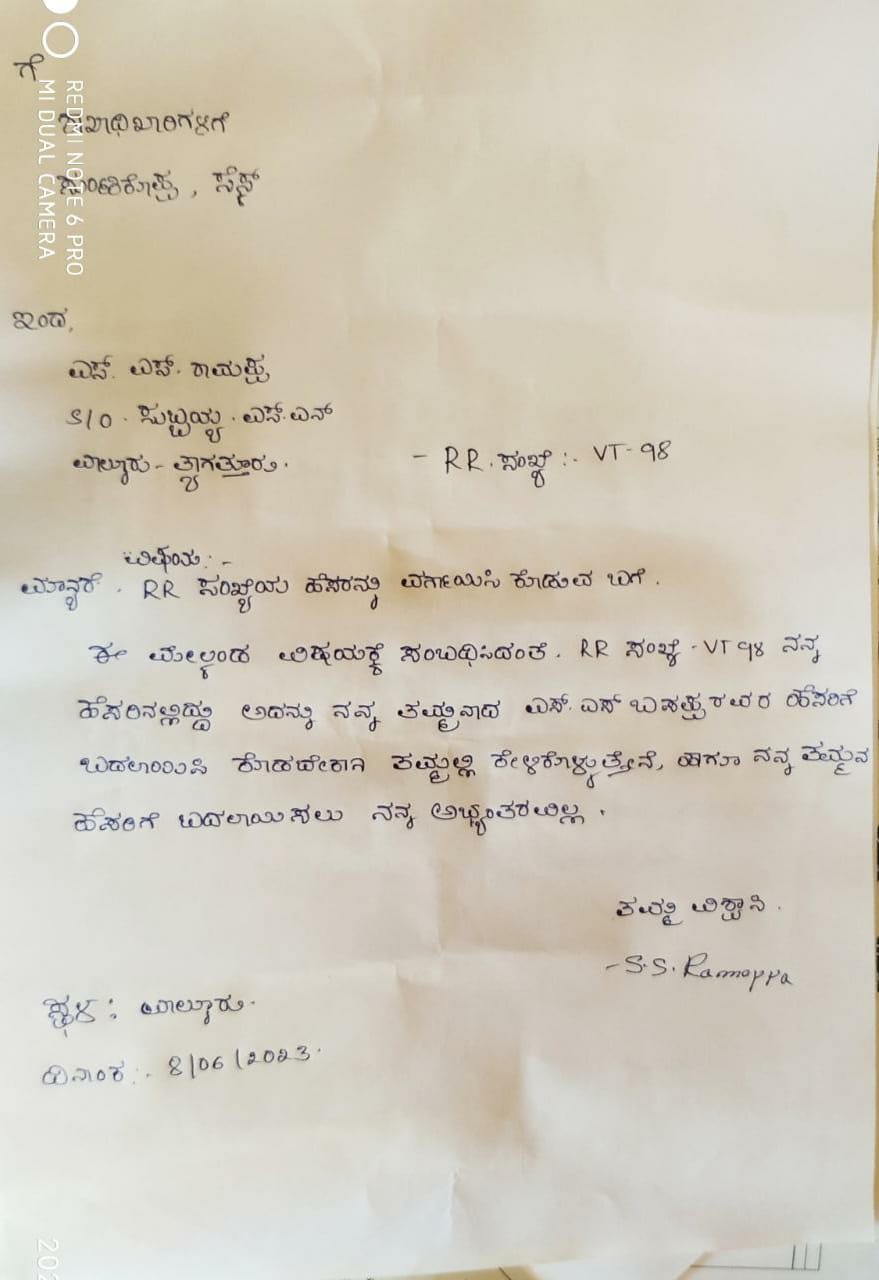 ಗೆ
ಶಾಖಾಧಿಕಾರಿಗಳಿಗೆ
ಸುಂಟಿಕೊಪ್ಪ, ಸೆಸ್ಕ್
ಇಂದ,
ಎಸ್. ಎಸ್. ರಾಮಪ್ಪ
S/O. ಸುಬ್ಬಯ್ಯ. ಎಸ್.ಎನ್
ವಾಲ್ನೂರು - ತ್ಯಾಗತ್ತೂರು. - RR. ಸಂಖ್ಯೆ :- VT-98
ವಿಷಯ: -
ಮಾನ್ಯರೆ. RR ಸಂಖ್ಯೆಯ ಹೆಸರನ್ನು ವರ್ಗಾಯಿಸಿ ಕೊಡುವ ಬಗೆ.
ಈ ಮೇಲ್ಕಂಡ ವಿಷಯಕ್ಕೆ ಸಂಬಧಿಸಿದಂತೆ. RR ಸಂಖ್ಯೆ - VT 98 ನನ್ನ
ಹೆಸರಿನಲ್ಲಿದ್ದು ಅದನ್ನು ನನ್ನ ತಮ್ಮನಾದ ಎಸ್. ಎಸ್ ಬಸಪ್ಪರವರ ಹೆಸರಿಗೆ
ಬದಲಾಯಿಸಿ ಕೊಡಬೇಕಾಗಿ ತಮ್ಮಲ್ಲಿ ಕೇಳಿಕೊಳ್ಳುತ್ತೇನೆ, ಹಾಗೂ ನನ್ನ ತಮ್ಮನ
ಹೆಸರಿಗೆ ಬದಲಾಯಿಸಲು ನನ್ನ ಅಭ್ಯಂತರವಿಲ್ಲ.
ತಮ್ಮ ವಿಶ್ವಾಸಿ.
- S.S. Ramappa
ಸ್ಥಳ: ವಾಲ್ನೂರು.
ದಿನಾಂಕ:- 8/06/2023.
REDMI NOTE 6 PRO
MI DUAL CAMERA